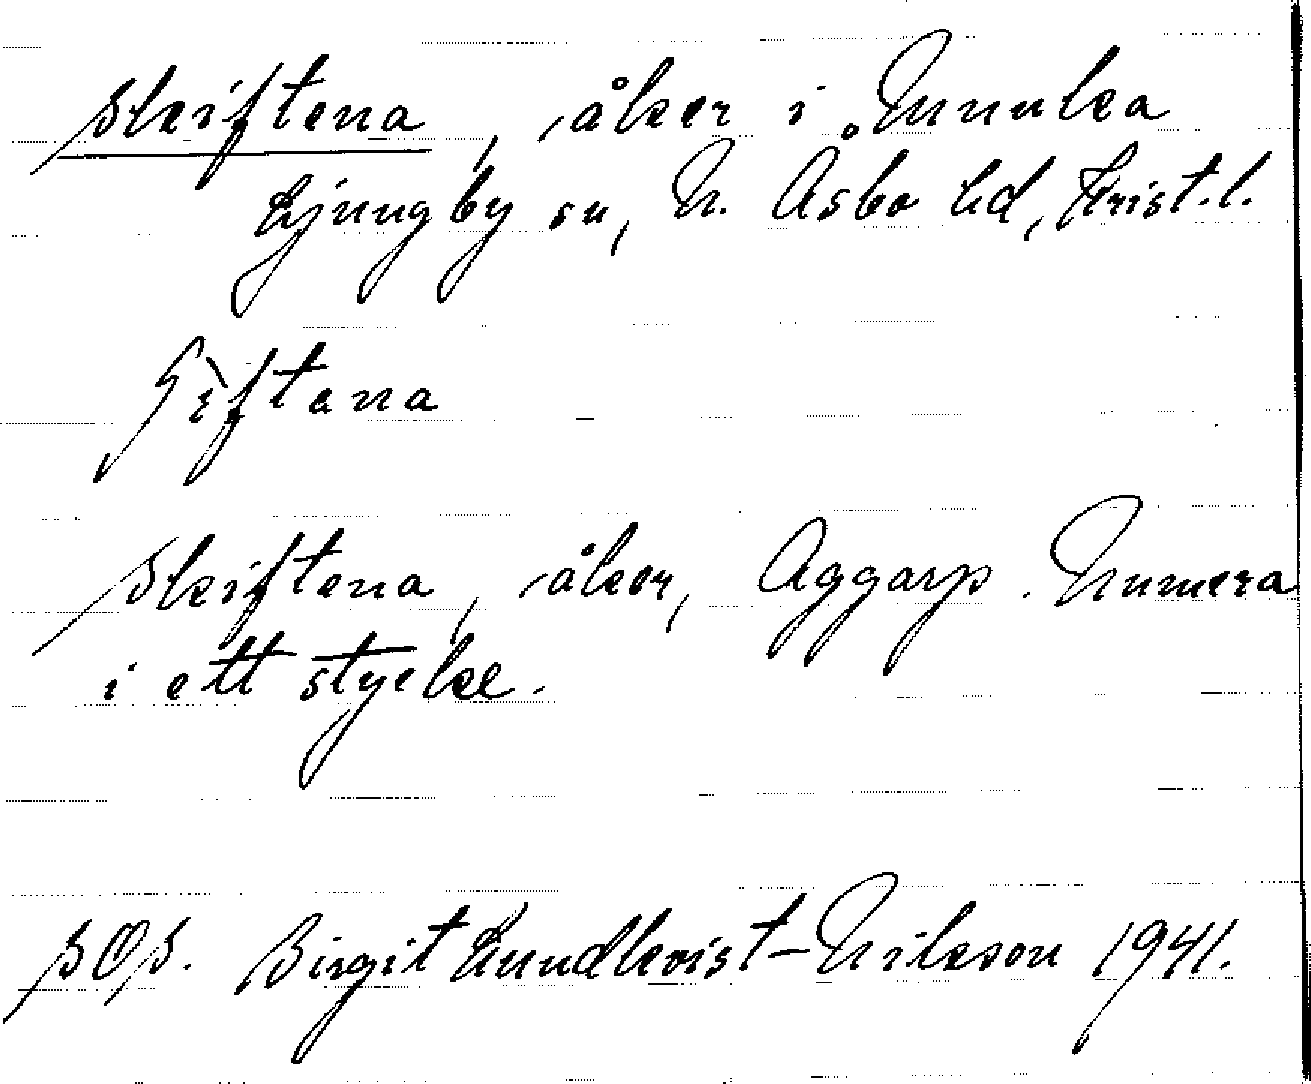 Skiftena, åker i Munka
Ljungby sn, N. Åsbo hd, Krist. l.
ʃìftena
Skiftena, åker, Aggarp. Numera
i ett stycke.
SOS. Birgit Lundkvist-Nilsson 1941.